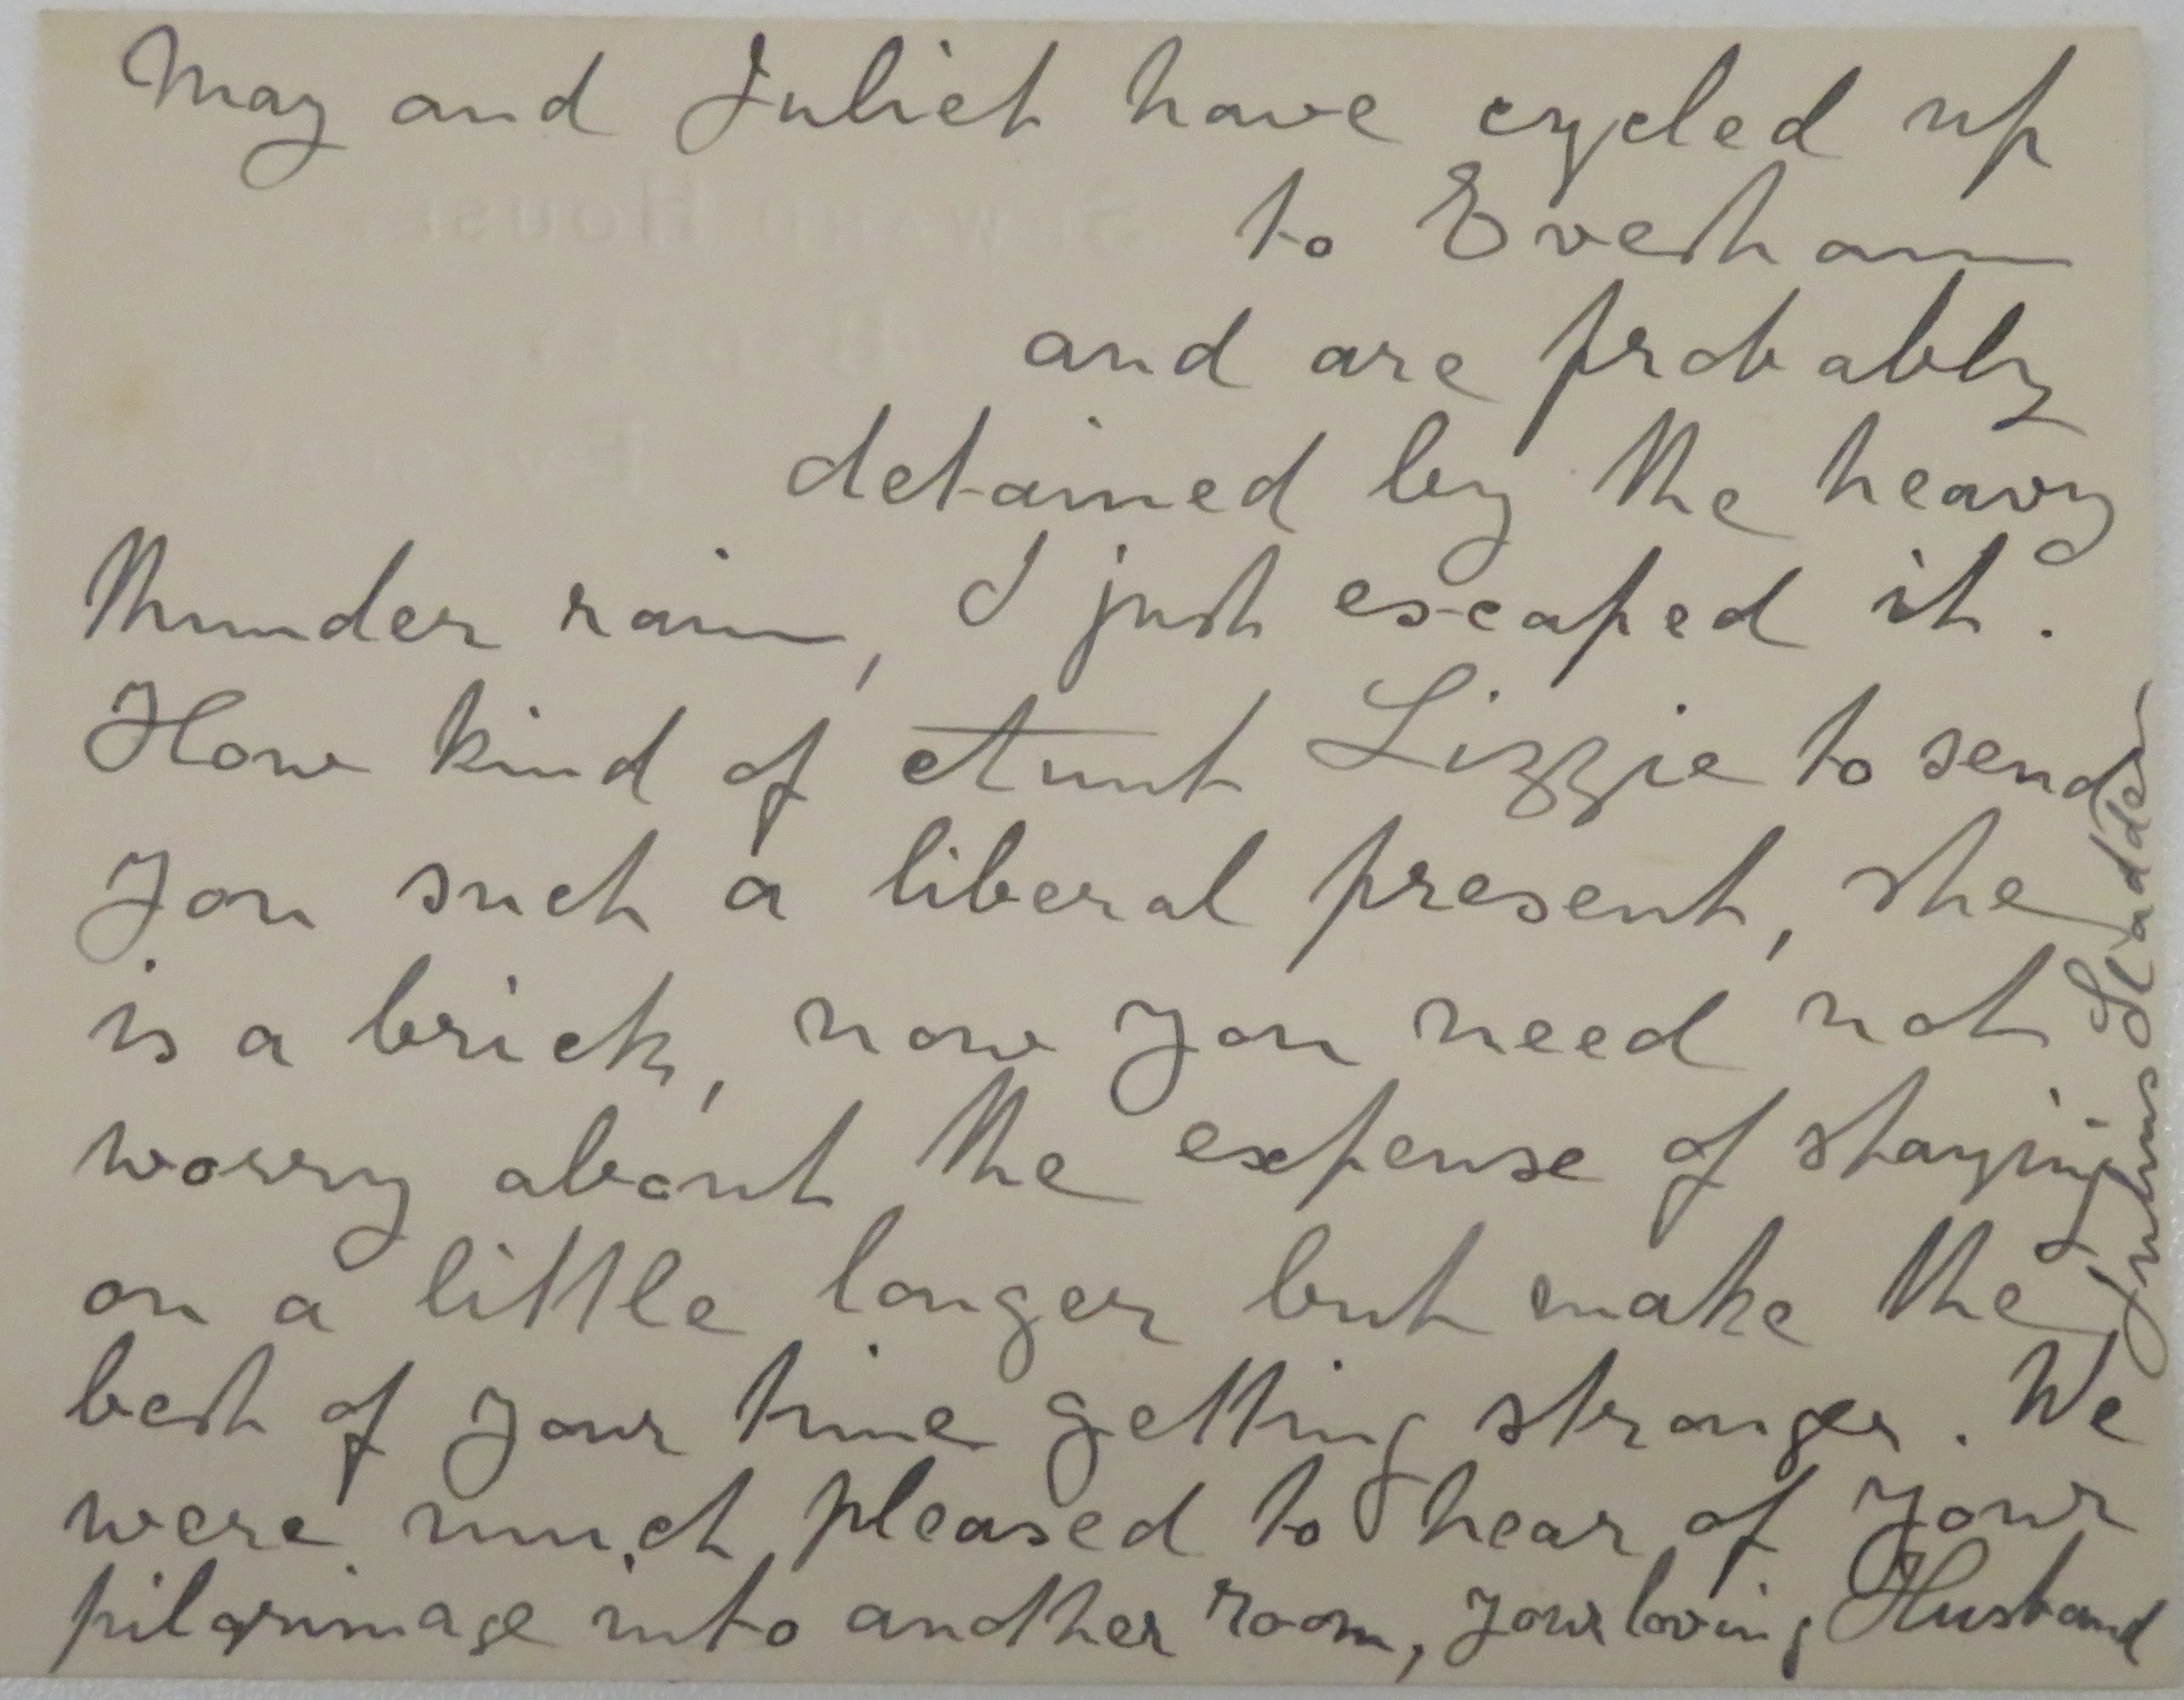 May and Juliet have cycled up
to Evesham
and are probably
detained by the heavy
thunder rain, I just escaped it.
How kind of Aunt Lizzie to send
you such a liberal present, she
is a brick, now you need not
worry about the expense of staying
on a little longer but make the
best of your time getting stronger. We
were much pleased to hear of your
pilgrimage into another room, your loving Husband
Julius Sladden